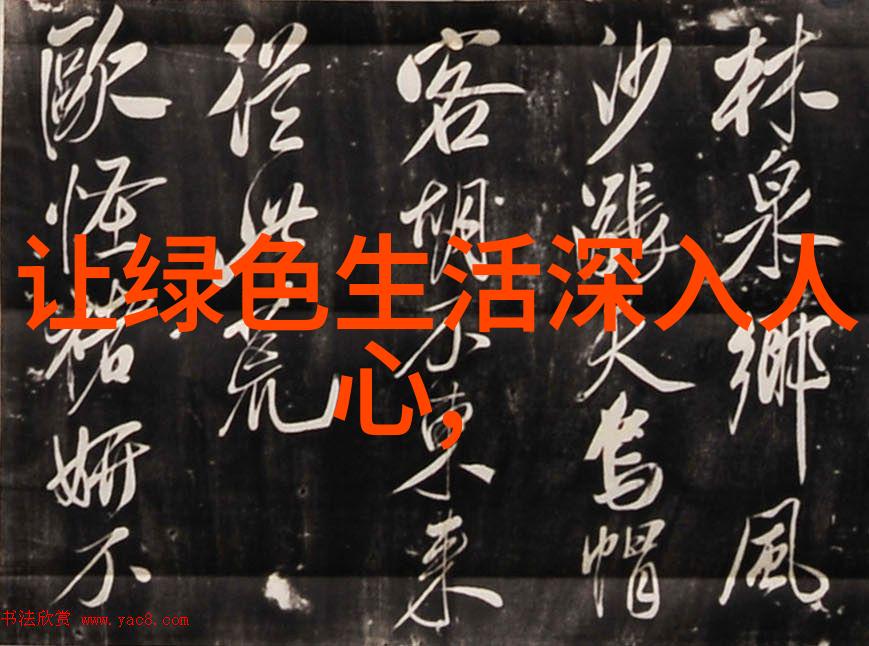 让绿色生活深入人
心,
林泉鄉風
沙漲烏帽
客胡不東來
從此荒
歐怪褚妍不
书法欣赏 www.yac8.com